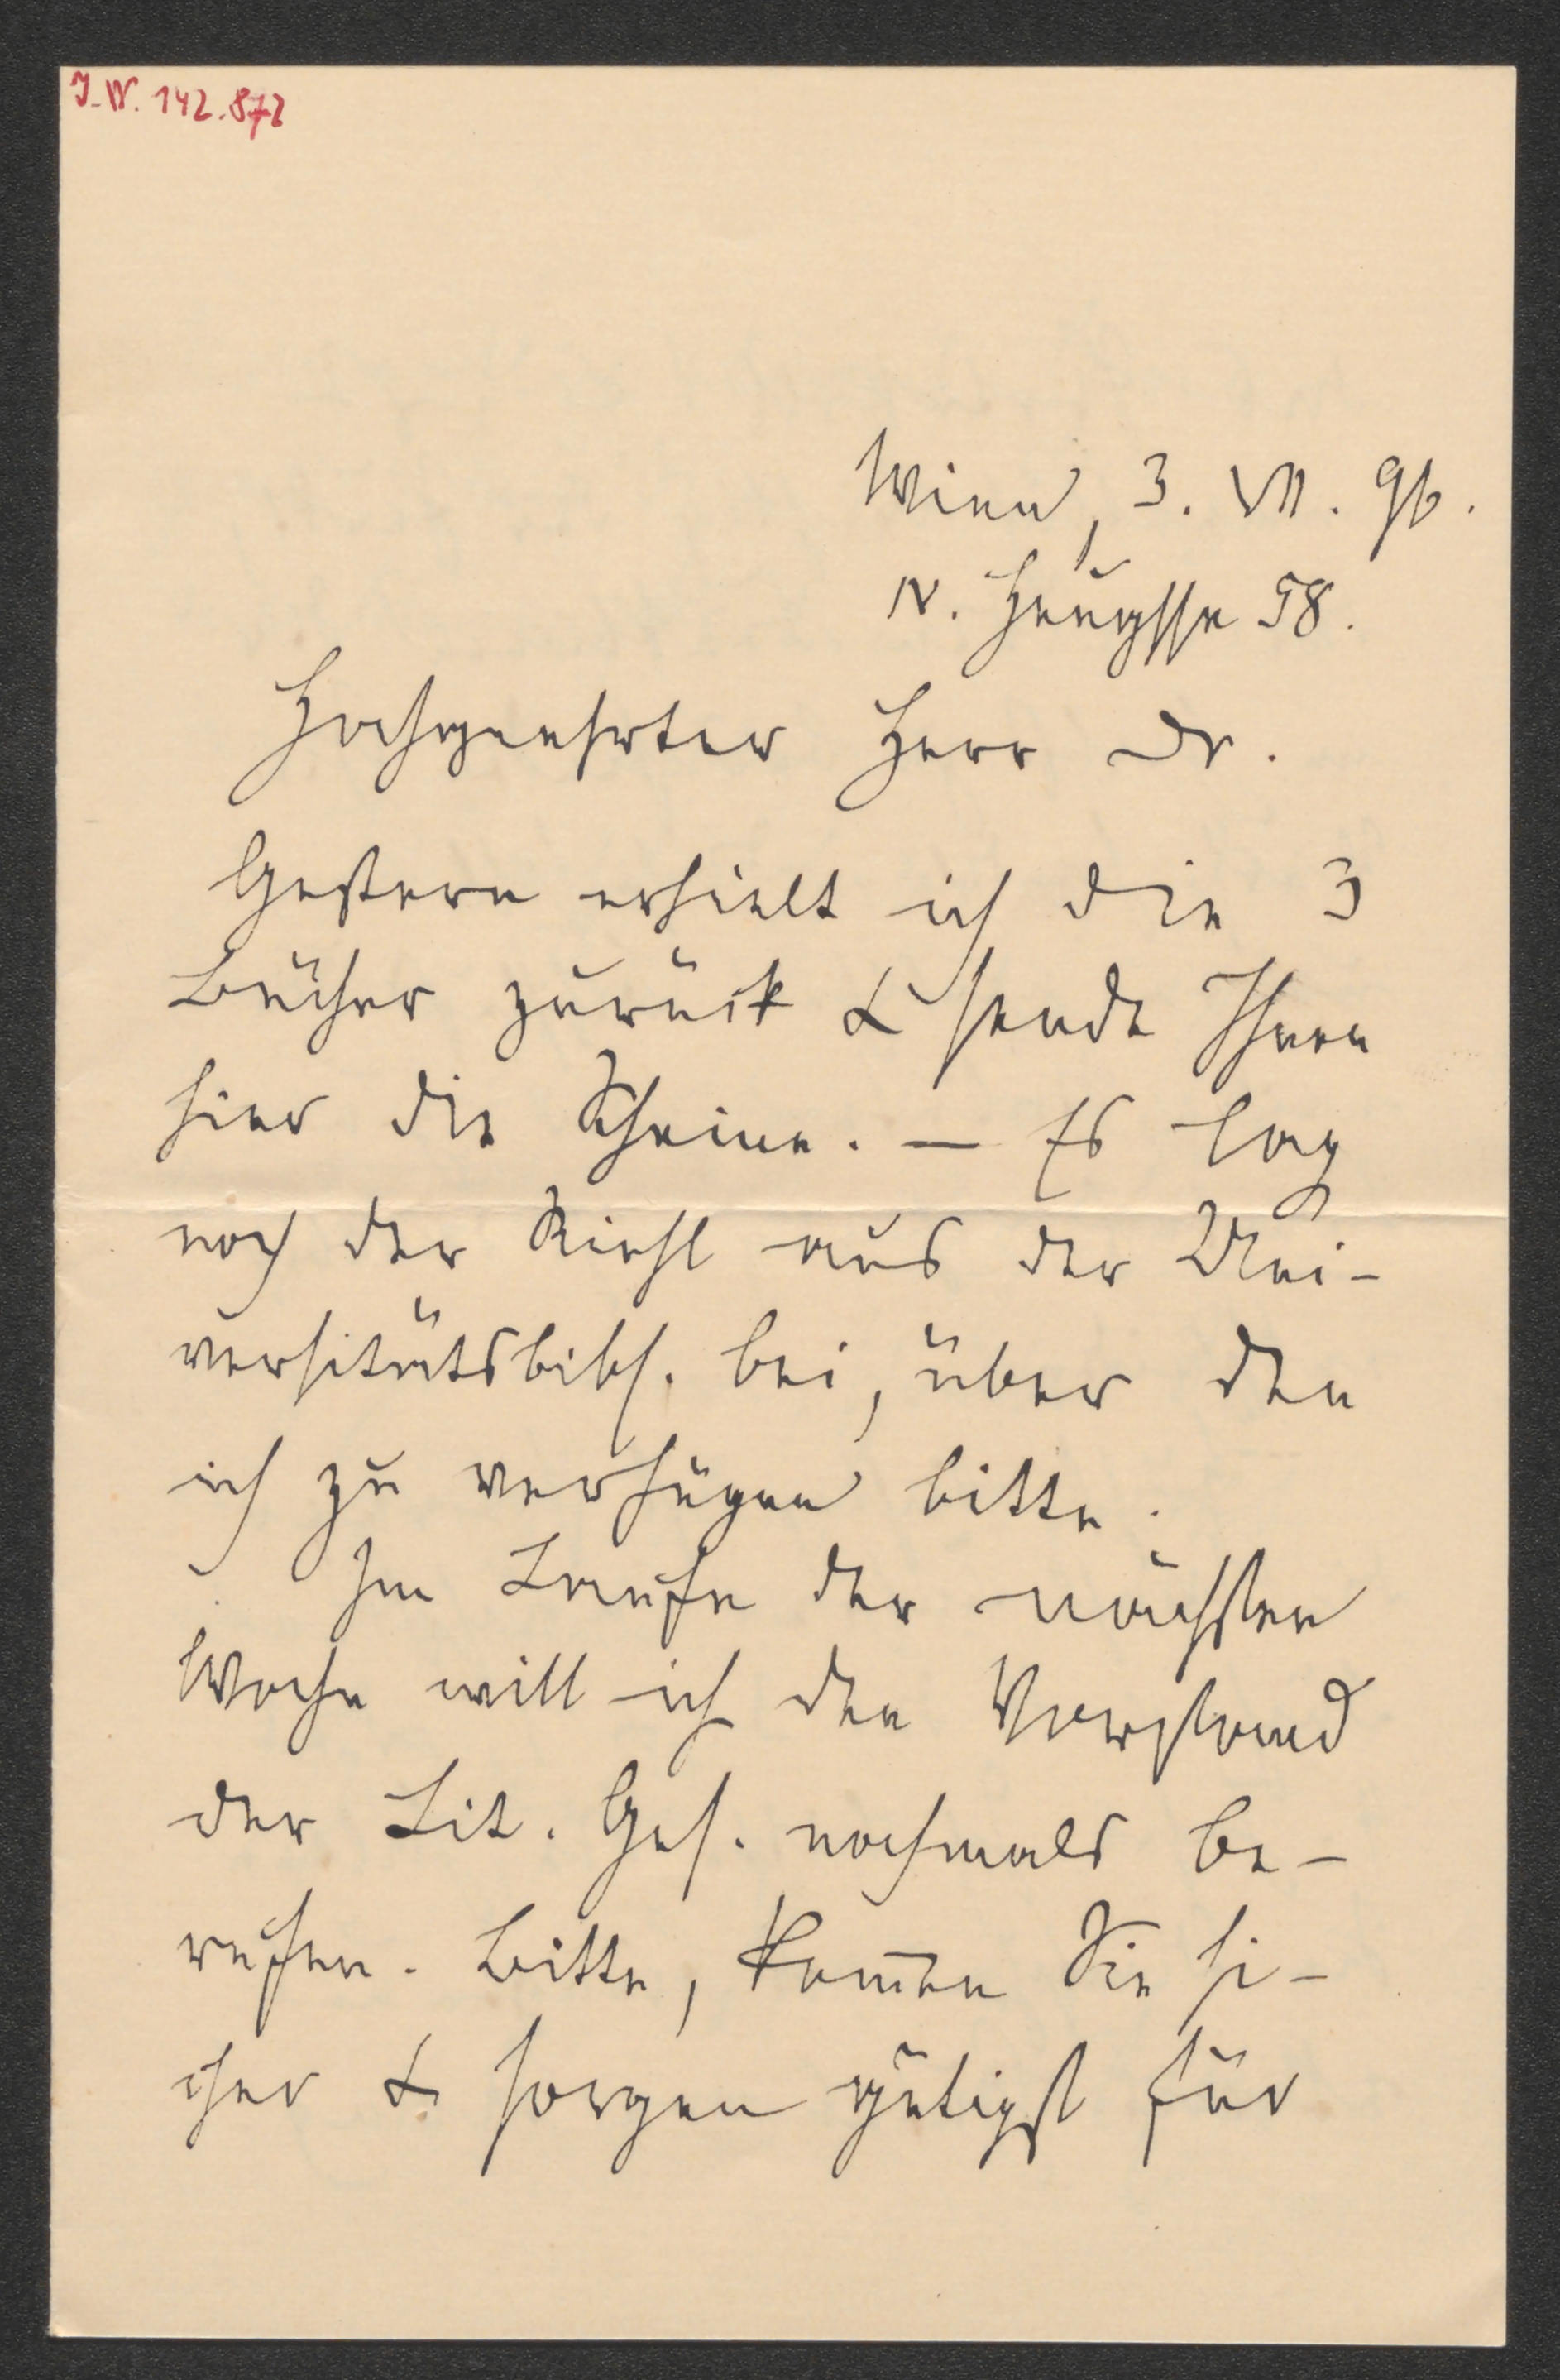 J.N. 142.872
Wien, 3. VII. 96.
IV. Heugasse 58.
Hochgeehrter Herr Dr.
Gestern erhielt ich die 3
Bücher zurück & sende Ihnen
hier die Scheine. — Es lag
noch der Riehl aus der Uni-
versitätsbibl. bei, über den
ich zu verfügen bitte.
Im Laufe der nächsten
Woche will ich den Vorstand
der Lit. Ges. nochmals be-
rufen. Bitte, kom̅en Sie si-
cher & sorgen gütigst für